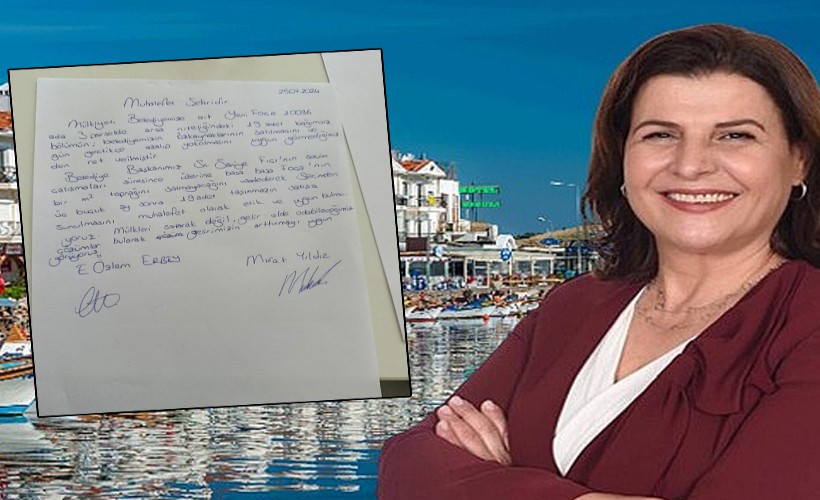 25.07.2024
Muhalefet Şerhidir
Mülkiyeti Belediyemize ait Yeni Foça 10036
ada 3 parselde arsa niteliğindeki 19 adet bağımsız
bölümün, belediyemizin taşınmazlarının satılmasını ve
gün geçtikçe azalıp yokolmasını uygun görmediğimiz
den ret verilmiştir.
Belediye Başkanımız Sn Saniye Fıçı'nın seçim
çalışmaları süresince üzerine basa basa Foça'nın
bir m² toprağını satmayacağını vaadederek seçimden
üç buçuk ay sonra 19 adet taşınmazın satışa
sunulmasını muhalefet olarak etik ve uygun bulmu
yoruz. Mülkleri satarak değil, gelir elde edebileceğimiz
çözümler bularak gelirimizin arttırmayı uygun
görüyoruz.
E. Özlem ERBEY Murat Yıldız
HOTEL